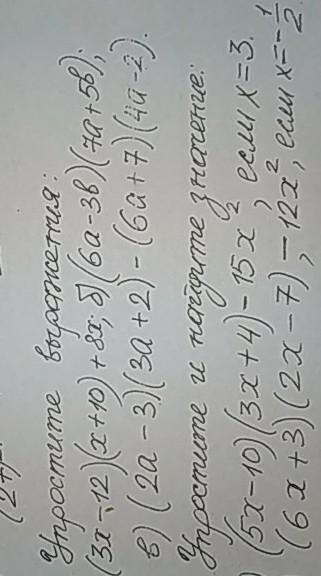 Упростите выражения:
(3x-12)(x+10)+8x; б) (6a-3b)(7a+5b);
в) (2a-3)(3a+2)-(6a+7)(4a-2).
Упростите и найдите значение:
) (5x-10)(3x+4)-15x², если x=3.
(6x+3)(2x-7)-12x², если x=-1/2.